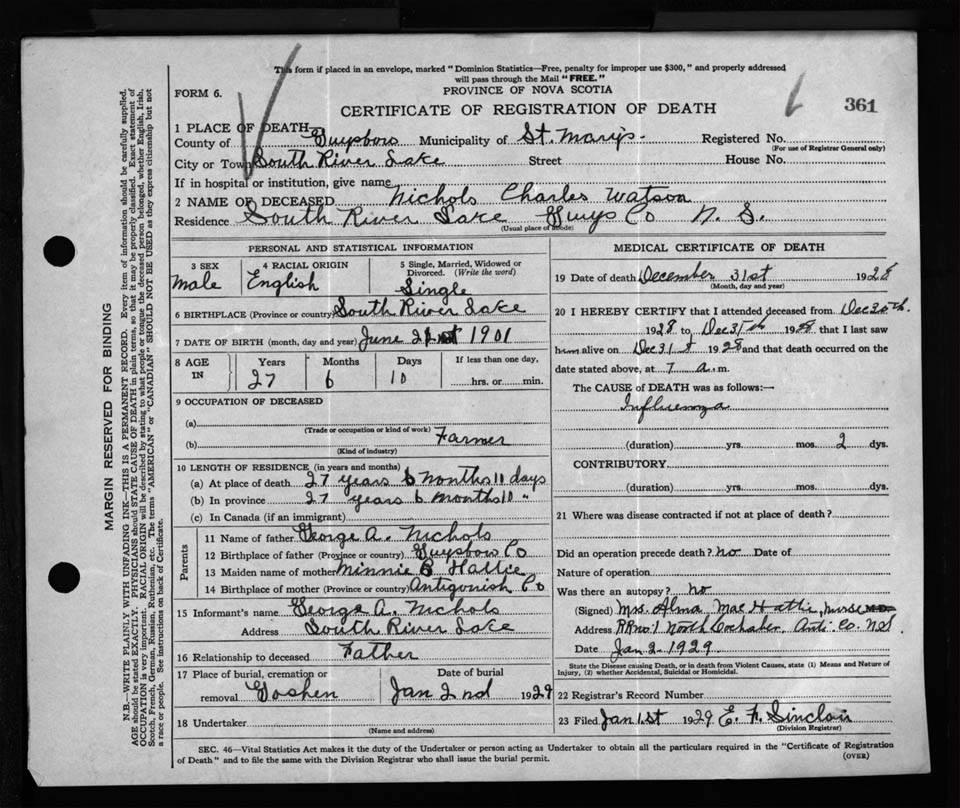 This form if placed in an envelope, marked "Dominion Statistics—Free, penalty for improper use $300," and properly addressed
will pass through the Mail "FREE."
PROVINCE OF NOVA SCOTIA
FORM 6.
CERTIFICATE OF REGISTRATION OF DEATH
361
1 PLACE OF DEATH
County of Guysboro Municipality of St. Mary's Registered No.
(For use of Registrar General only)
City or Town South River Lake Street House No.
If in hospital or institution, give name
2 NAME OF DECEASED Nichols Charles Watson
Residence South River Lake Guys Co N. S.
(Usual place of abode)
PERSONAL AND STATISTICAL INFORMATION
3 SEX 4 RACIAL ORIGIN 5 Single, Married, Widowed or Divorced. (Write the word)
Male English Single
6 BIRTHPLACE (Province or country) South River Lake
7 DATE OF BIRTH (month, day and year) June 21st 1901
8 AGE IN Years Months Days If less than one day,
27 6 10 hrs. or min.
9 OCCUPATION OF DECEASED
(a)
(Trade or occupation or kind of work)
(b) Farmer
(Kind of industry)
10 LENGTH OF RESIDENCE (in years and months)
(a) At place of death 27 years 6 months 11 days
(b) In province 27 years 6 months 10 "
(c) In Canada (if an immigrant)
Parents
11 Name of father George A. Nichols
12 Birthplace of father (Province or country) Guysboro Co
13 Maiden name of mother Minnie B Hattie
14 Birthplace of mother (Province or country) Antigonish Co
15 Informant's name George A. Nichols
Address South River Lake
16 Relationship to deceased Father
17 Place of burial, cremation or removal Goshen
Date of burial
Jan 2nd 1929
18 Undertaker
(Name and address)
MEDICAL CERTIFICATE OF DEATH
19 Date of death December 31st 1928
(Month, day and year)
20 I HEREBY CERTIFY that I attended deceased from Dec 30th
1928 to Dec 31th 1928 that I last saw
him alive on Dec 31st 1928 and that death occurred on the
date stated above, at 7 a. m.
The CAUSE of DEATH was as follows:—
Influenza
(duration) yrs. mos. 2 dys.
CONTRIBUTORY
(duration) yrs. mos. dys.
21 Where was disease contracted if not at place of death?
Did an operation precede death? no Date of
Nature of operation
Was there an autopsy? no
(Signed) Mrs. Alma Mae Hattie, nurse M.D.
Address RR no. 1 North Lochaber Anti. Co. N.S.
Date Jan 2 - 1929
State the Disease causing Death, or in death from Violent Causes, state (1) Means and Nature of
Injury, (2) whether Accidental, Suicidal or Homicidal.
22 Registrar's Record Number
23 Filed Jan 1st 1929 E. F. Sinclair
(Division Registrar)
SEC. 46—Vital Statistics Act makes it the duty of the Undertaker or person acting as Undertaker to obtain all the particulars required in the "Certificate of Registration
of Death" and to file the same with the Division Registrar who shall issue the burial permit.
(OVER)
MARGIN RESERVED FOR BINDING
N.B.—WRITE PLAINLY WITH UNFADING INK—THIS IS A PERMANENT RECORD. Every item of information should be carefully supplied.
AGE should be stated EXACTLY. PHYSICIANS should STATE CAUSE OF DEATH in plain terms, so that it may be properly classified. Exact statement of
OCCUPATION is very important. RACIAL ORIGIN will be described by stating to what people or tongue the deceased person belonged, whether English, Irish,
Scotch, French, German, Russian, Ruthenian, etc. The terms "AMERICAN" or "CANADIAN" SHOULD NOT BE USED as they express citizenship but not
a race or people. See instructions on back of Certificate.